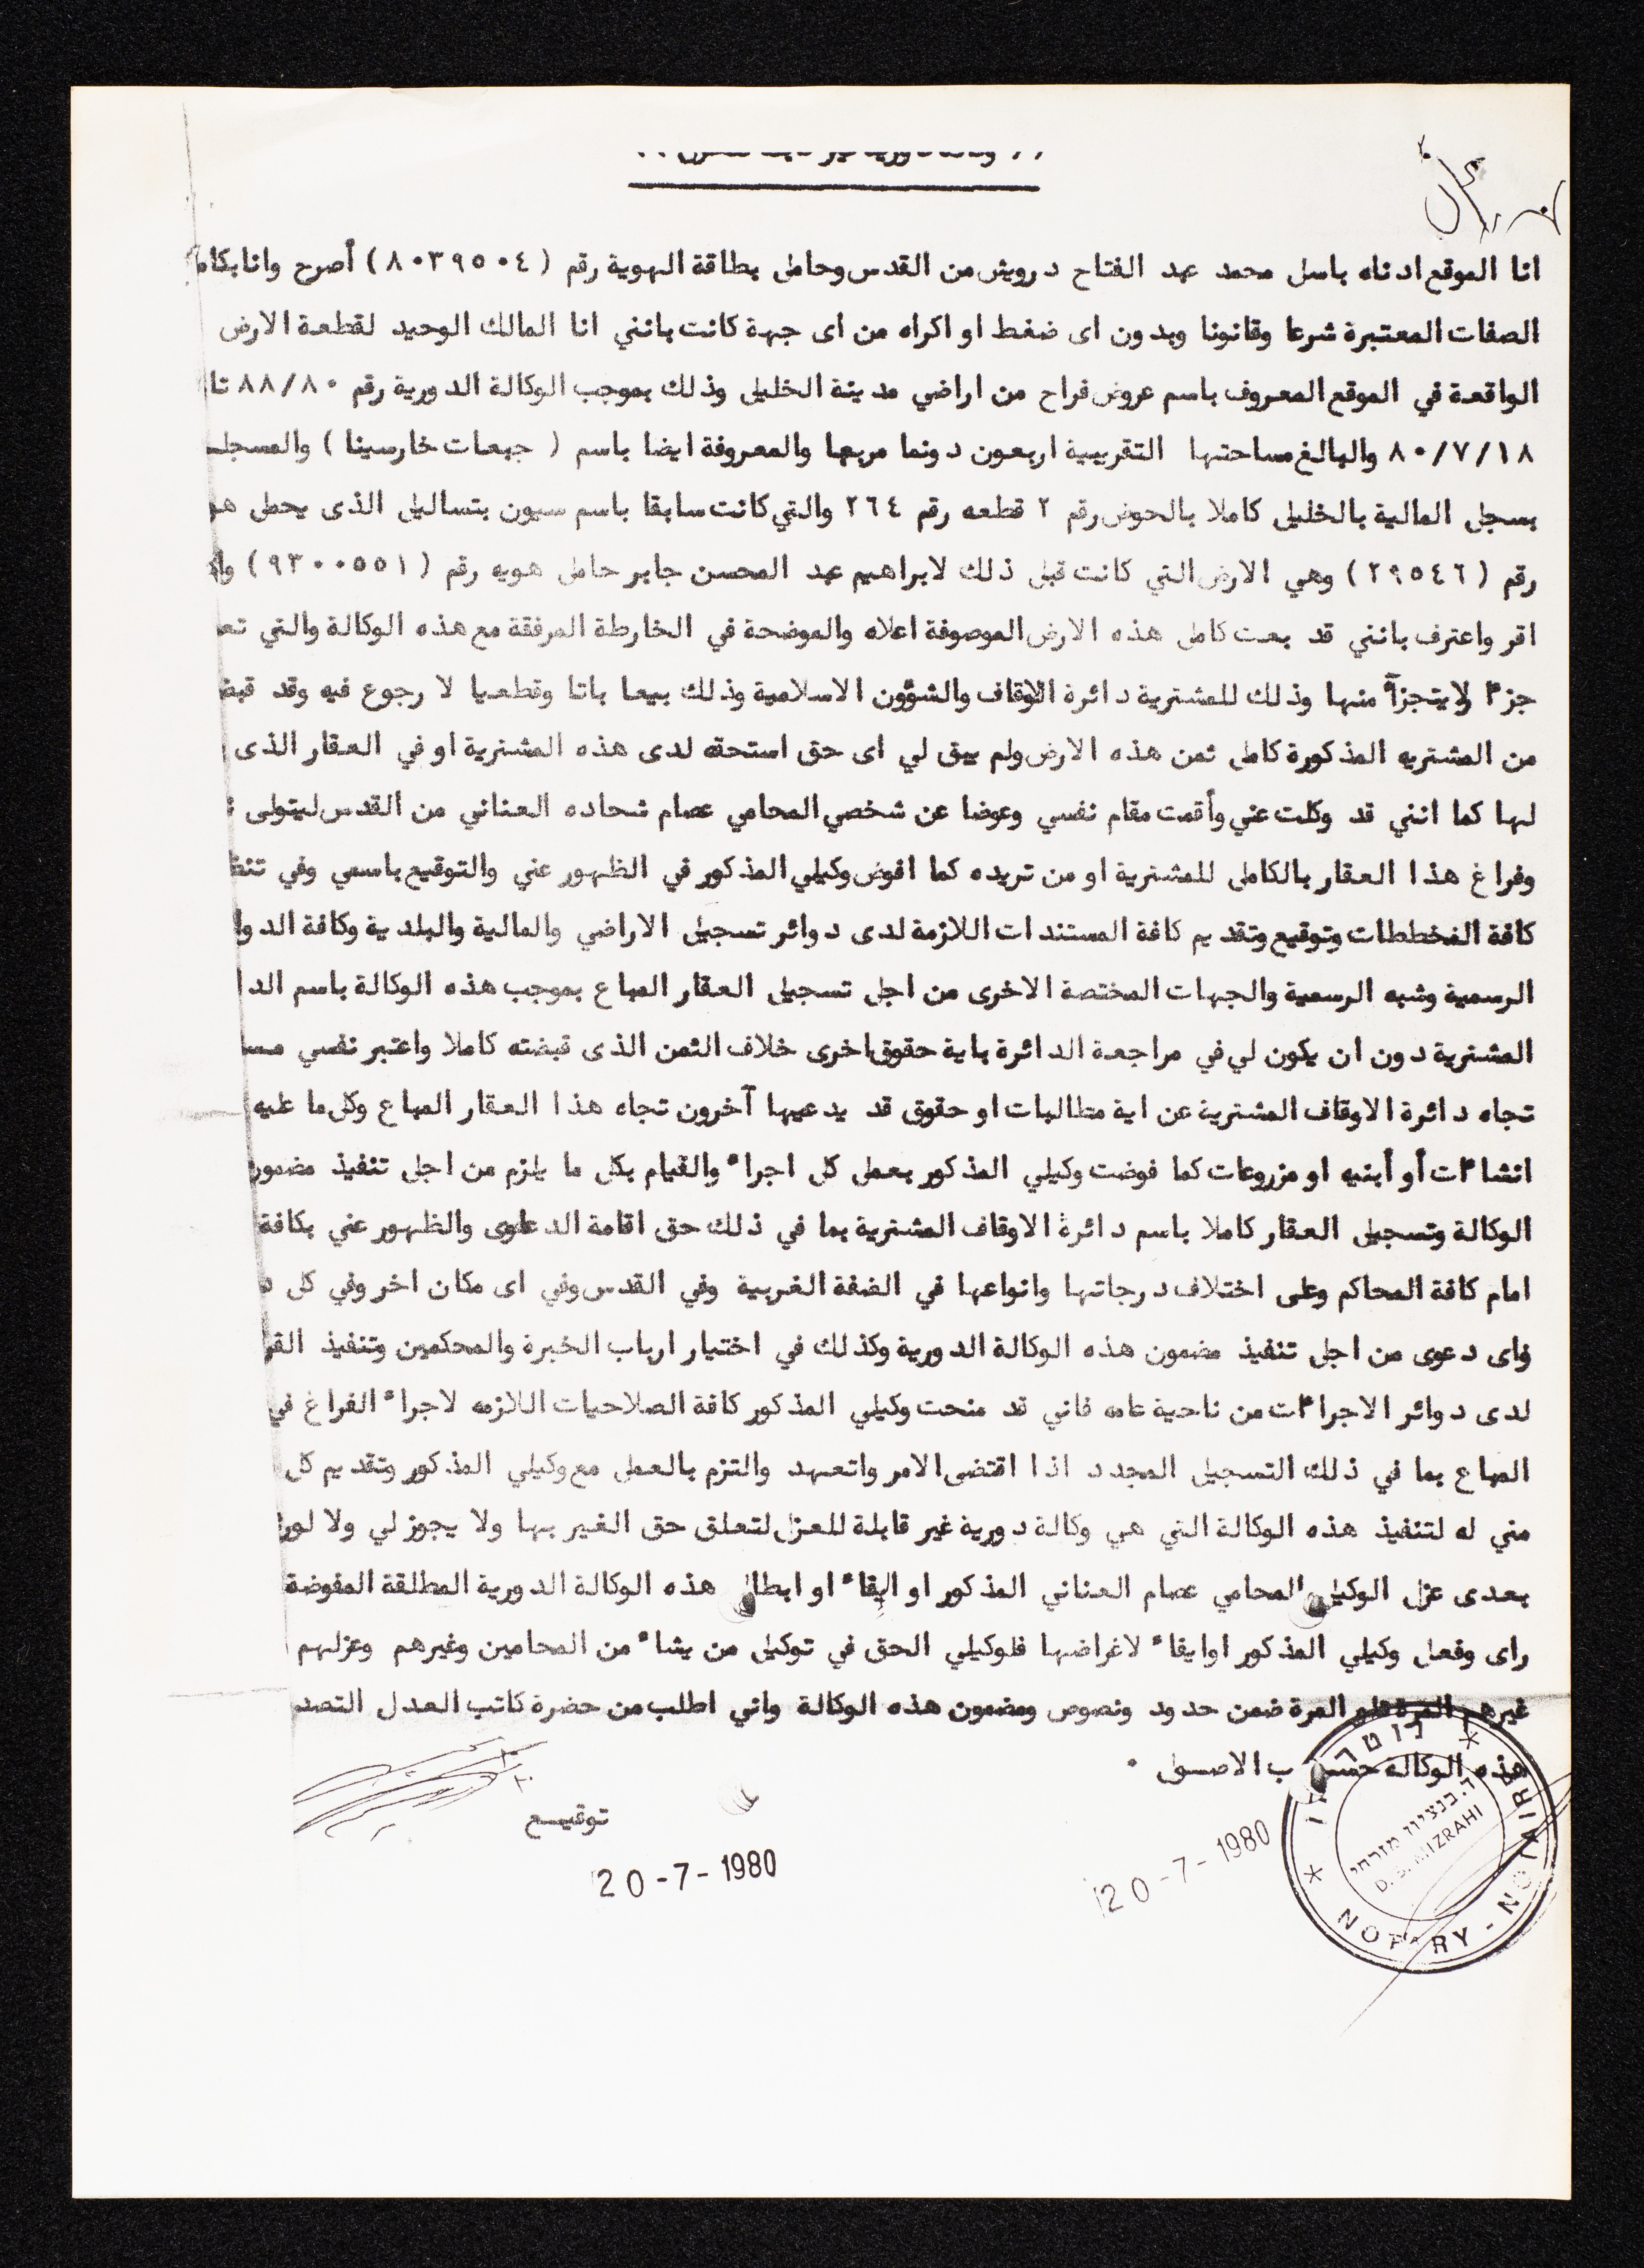 انا الموقع ادناه باسل محمد عبد الفتاح درويش من القدس وحامل بطاقة الهوية رقم ( ٨٠٣٩٥٠٤ ) أصرح وانا بكام
الصفات المعتبرة شرعا وقانونا وبدون اى ضغط او اكراه من اى جهة كانت بانني انا المالك الوحيد لقطعة الارض
الواقعة في الموقع المعروف باسم عروض فراح من اراضي مدينة الخليل وذلك بموجب الوكالة الدورية رقم ٨٨/٨٠ تا
٨٠/٧/١٨ والبالغ مساحتها التقريبية اربعون دونما مربعا والمعروفة ايضا باسم ( جبعات خارسينا ) والمسجلـ
بسجل المالية بالخليل كاملا بالحوض رقم ٢ قطعه رقم ٢٦٤ والتي كانت سابقا باسم سيون بتساليل الذى يحمل هو
رقم ( ٢٩٥٤٦ ) وهي الارض التي كانت قبل ذلك لابراهيم عبد المحسن جابر حامل هويه رقم ( ٩٣٠٠٥٥١ )
اقر واعترف بانني قد بعت كامل هذه الارض الموصوفة اعلاه والموضحة في الخارطة المرفقة مع هذه الوكالة والتي تعـ
جزءا لا يتجزأ منها وذلك للمشترية دائرة الاوقاف والشؤون الاسلامية وذلك بيعا باتا وقطعيا لا رجوع فيه وقد قبض
من المشتريه المذكورة كامل ثمن هذه الارض ولم يبق لي اى حق استحقه لدى هذه المشترية او في العقار الذى
لها كما انني قد وكلت عني وأقمت مقام نفسي وعوضا عن شخصي المحامي عصام شحاده العناني من القدس ليتولى
وفراغ هذا العقار بالكامل للمشترية او من تريده كما افوض وكيلي المذكور في الظهور عني والتوقيع باسمي وفي تنظـ
كافة المخططات وتوقيع وتقديم كافة المستندات اللازمة لدى دوائر تسجيل الاراضي والمالية والبلدية وكافة الدوا
الرسمية وشبه الرسمية والجهات المختصة الاخرى من اجل تسجيل العقار المباع بموجب هذه الوكالة باسم الدا
المشترية دون ان يكون لي في مراجعة الدائرة باية حقوق اخرى خلاف الثمن الذى قبضته كاملا واعتبر نفسي مسـ
تجاه دائرة الاوقاف المشترية عن اية مطالبات او حقوق قد يدعيها آخرون تجاه هذا العقار المباع وكل ما عليه
انشاءات أو أبنيه او مزروعات كما فوضت وكيلي المذكور بعمل كل اجراء والقيام بكل ما يلزم من اجل تنفيذ مضمون
الوكالة وتسجيل العقار كاملا باسم دائرة الاوقاف المشترية بما في ذلك حق اقامة الدعاوى والظهور عني بكافة
امام كافة المحاكم وعلى اختلاف درجاتها وانواعها في الضفة الغربية وفي القدس وفي اى مكان اخر وفي كل د
واى دعوى من اجل تنفيذ مضمون هذه الوكالة الدورية وكذلك في اختيار ارباب الخبرة والمحكمين وتنفيذ القر
لدى دوائر الاجراءات من ناحية عامه فاني قد منحت وكيلي المذكور كافة الصلاحيات اللازمه لاجراء الفراغ في
المباع بما في ذلك التسجيل المجدد اذا اقتضى الامر واتعهد والتزم بالعمل مع وكيلي المذكور وتقديم كل
مني له لتنفيذ هذه الوكالة التي هي وكالة دورية غير قابلة للعزل لتعلق حق الغير بها ولا يجوز لي ولا لور
بعدى عزل الوكيل المحامي عصام العناني المذكور او ايقاء او ابطال هذه الوكالة الدورية المطلقة المفوضة
راى وفعل وكيلي المذكور اوايفاء لاغراضها فلوكيلي الحق في توكيل من يشاء من المحامين وغيرهم وعزلهم
غيرهم المرة تلو المرة ضمن حدود ونصوص ومضمون هذه الوكالة واني اطلب من حضرة كاتب العدل التصد
هذه الوكاله حسب الاصول ٠
توقيـع
20-7-1980
20-7-1980
נוטריון
ד. בנציון מזרחי
D. B. MIZRAHI
NOTARY - NOTAIRE